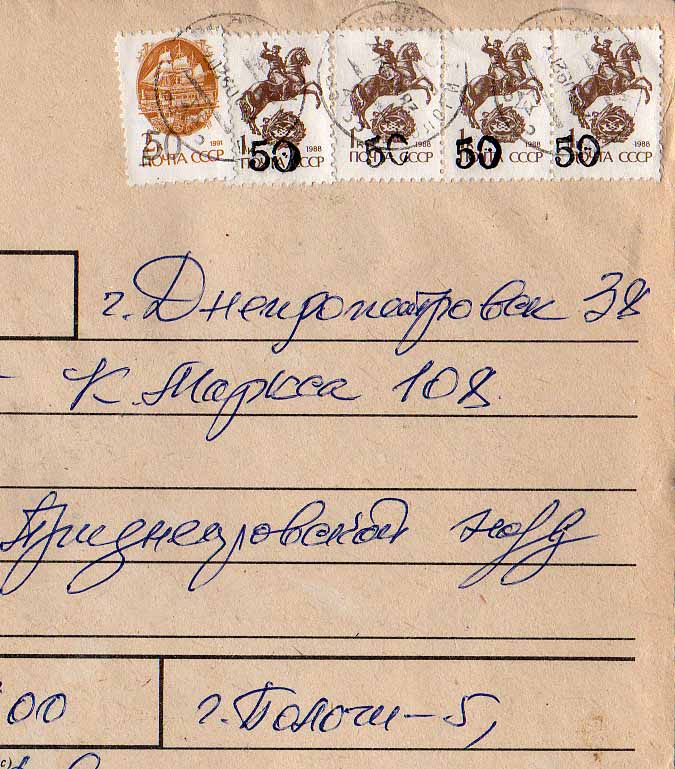 50 50 50 50 50
1991 1к 1988 1к 1988 1к 1988 1988
ПОЧТА СССР ПОЧТА СССР ПОЧТА СССР ПОЧТА СССР ПОЧТА СССР
г. Днепропетровск 38
К. Маркса 108
Приднепровской
00 г. Пологи-5,